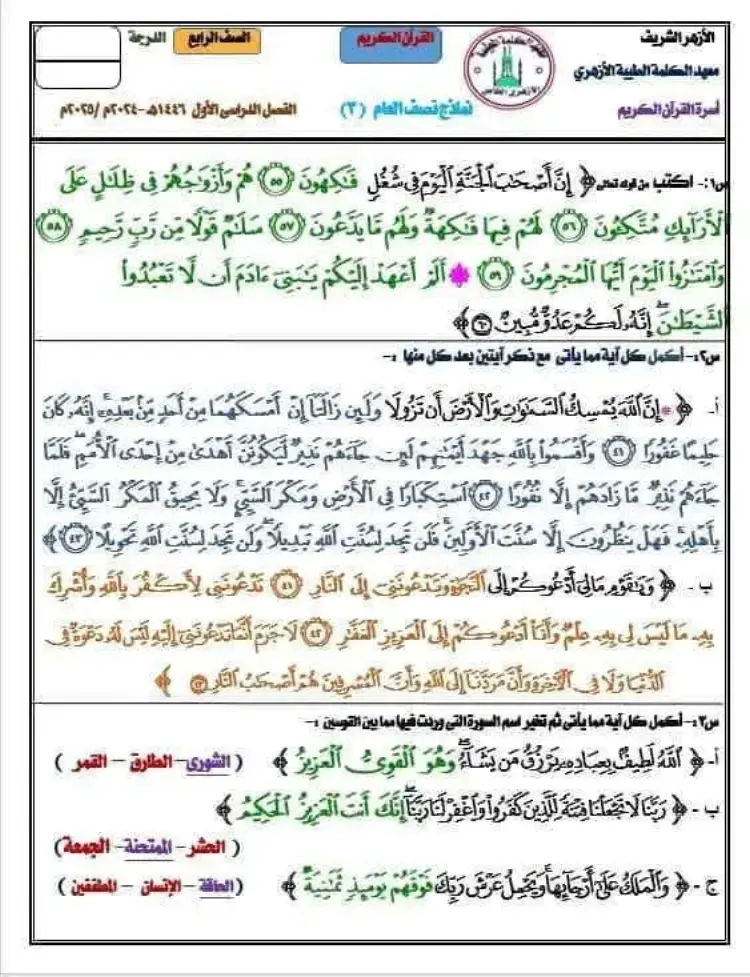 الأزهر الشريف
معهد الكلمة الطيبة الأزهري
أسرة القرآن الكريم
القرآن الكريم
نماذج نصف العام (٣)
الصف الرابع
الدرجة
الفصل الدراسى الأول ١٤٤٦هـ -٢٠٢٤م /٢٠٢٥م
س١:- اكتب من قوله تعالى ﴿ إِنَّ أَصْحَٰبَ ٱلْجَنَّةِ ٱلْيَوْمَ فِى شُغُلٍ فَٰكِهُونَ ٥٥ هُمْ وَأَزْوَٰجُهُمْ فِى ظِلَٰلٍ عَلَى
ٱلْأَرَآئِكِ مُتَّكِـُٔونَ ٥٦ لَهُمْ فِيهَا فَٰكِهَةٌ وَلَهُم مَّا يَدَّعُونَ ٥٧ سَلَٰمٌ قَوْلًا مِّن رَّبٍّ رَّحِيمٍ ٥٨
وَٱمْتَٰزُوا۟ ٱلْيَوْمَ أَيُّهَا ٱلْمُجْرِمُونَ ٥٩ * أَلَمْ أَعْهَدْ إِلَيْكُمْ يَٰبَنِىٓ ءَادَمَ أَن لَّا تَعْبُدُوا۟
ٱلشَّيْطَٰنَ ۖ إِنَّهُۥ لَكُمْ عَدُوٌّ مُّبِينٌ ٦٠ ﴾
س٢:- أكمل كل آية مما يأتى مع ذكر آيتين بعد كل منها :-
أ- ﴿ * إِنَّ ٱللَّهَ يُمْسِكُ ٱلسَّمَٰوَٰتِ وَٱلْأَرْضَ أَن تَزُولَا ۚ وَلَئِن زَالَتَآ إِنْ أَمْسَكَهُمَا مِنْ أَحَدٍ مِّنۢ بَعْدِهِۦٓ ۚ إِنَّهُۥ كَانَ
حَلِيمًا غَفُورًا ٤١ وَأَقْسَمُوا۟ بِٱللَّهِ جَهْدَ أَيْمَٰنِهِمْ لَئِن جَآءَهُمْ نَذِيرٌ لَّيَكُونُنَّ أَهْدَىٰ مِنْ إِحْدَى ٱلْأُمَمِ ۖ فَلَمَّا
جَآءَهُمْ نَذِيرٌ مَّا زَادَهُمْ إِلَّا نُفُورًا ٤٢ ٱسْتِكْبَارًا فِى ٱلْأَرْضِ وَمَكْرَ ٱلسَّيِّئِ ۚ وَلَا يَحِيقُ ٱلْمَكْرُ ٱلسَّيِّئُ إِلَّا
بِأَهْلِهِۦ ۚ فَهَلْ يَنظُرُونَ إِلَّا سُنَّتَ ٱلْأَوَّلِينَ ۚ فَلَن تَجِدَ لِسُنَّتِ ٱللَّهِ تَبْدِيلًا ۖ وَلَن تَجِدَ لِسُنَّتِ ٱللَّهِ تَحْوِيلًا ٤٣ ﴾
ب- ﴿ وَيَٰقَوْمِ مَا لِىٓ أَدْعُوكُمْ إِلَى ٱلنَّجَوٰةِ وَتَدْعُونَنِىٓ إِلَى ٱلنَّارِ ٤١ تَدْعُونَنِى لِأَكْفُرَ بِٱللَّهِ وَأُشْرِكَ
بِهِۦ مَا لَيْسَ لِى بِهِۦ عِلْمٌ وَأَنَا۠ أَدْعُوكُمْ إِلَى ٱلْعَزِيزِ ٱلْغَفَّٰرِ ٤٢ لَا جَرَمَ أَنَّمَا تَدْعُونَنِىٓ إِلَيْهِ لَيْسَ لَهُۥ دَعْوَةٌ فِى
ٱلدُّنْيَا وَلَا فِى ٱلْءَاخِرَةِ وَأَنَّ مَرَدَّنَآ إِلَى ٱللَّهِ وَأَنَّ ٱلْمُسْرِفِينَ هُمْ أَصْحَٰبُ ٱلنَّارِ ٤٣ ﴾
س٣:- أكمل كل آية مما يأتى ثم تخير اسم السورة التى وردت فيها مما بين القوسين :-
أ- ﴿ ٱللَّهُ لَطِيفٌۢ بِعِبَادِهِۦ يَرْزُقُ مَن يَشَآءُ ۖ وَهُوَ ٱلْقَوِىُّ ٱلْعَزِيزُ ﴾ ( الشورى – الطارق – القمر )
ب- ﴿ رَبَّنَا لَا تَجْعَلْنَا فِتْنَةً لِّلَّذِينَ كَفَرُوا۟ وَٱغْفِرْ لَنَا رَبَّنَآ ۖ إِنَّكَ أَنتَ ٱلْعَزِيزُ ٱلْحَكِيمُ ﴾
( الحشر – الممتحنة – الجمعة )
ج- ﴿ وَٱلْمَلَكُ عَلَىٰٓ أَرْجَآئِهَا ۚ وَيَحْمِلُ عَرْشَ رَبِّكَ فَوْقَهُمْ يَوْمَئِذٍ ثَمَٰنِيَةٌ ﴾ ( الحاقة – الإنسان – المطففين )